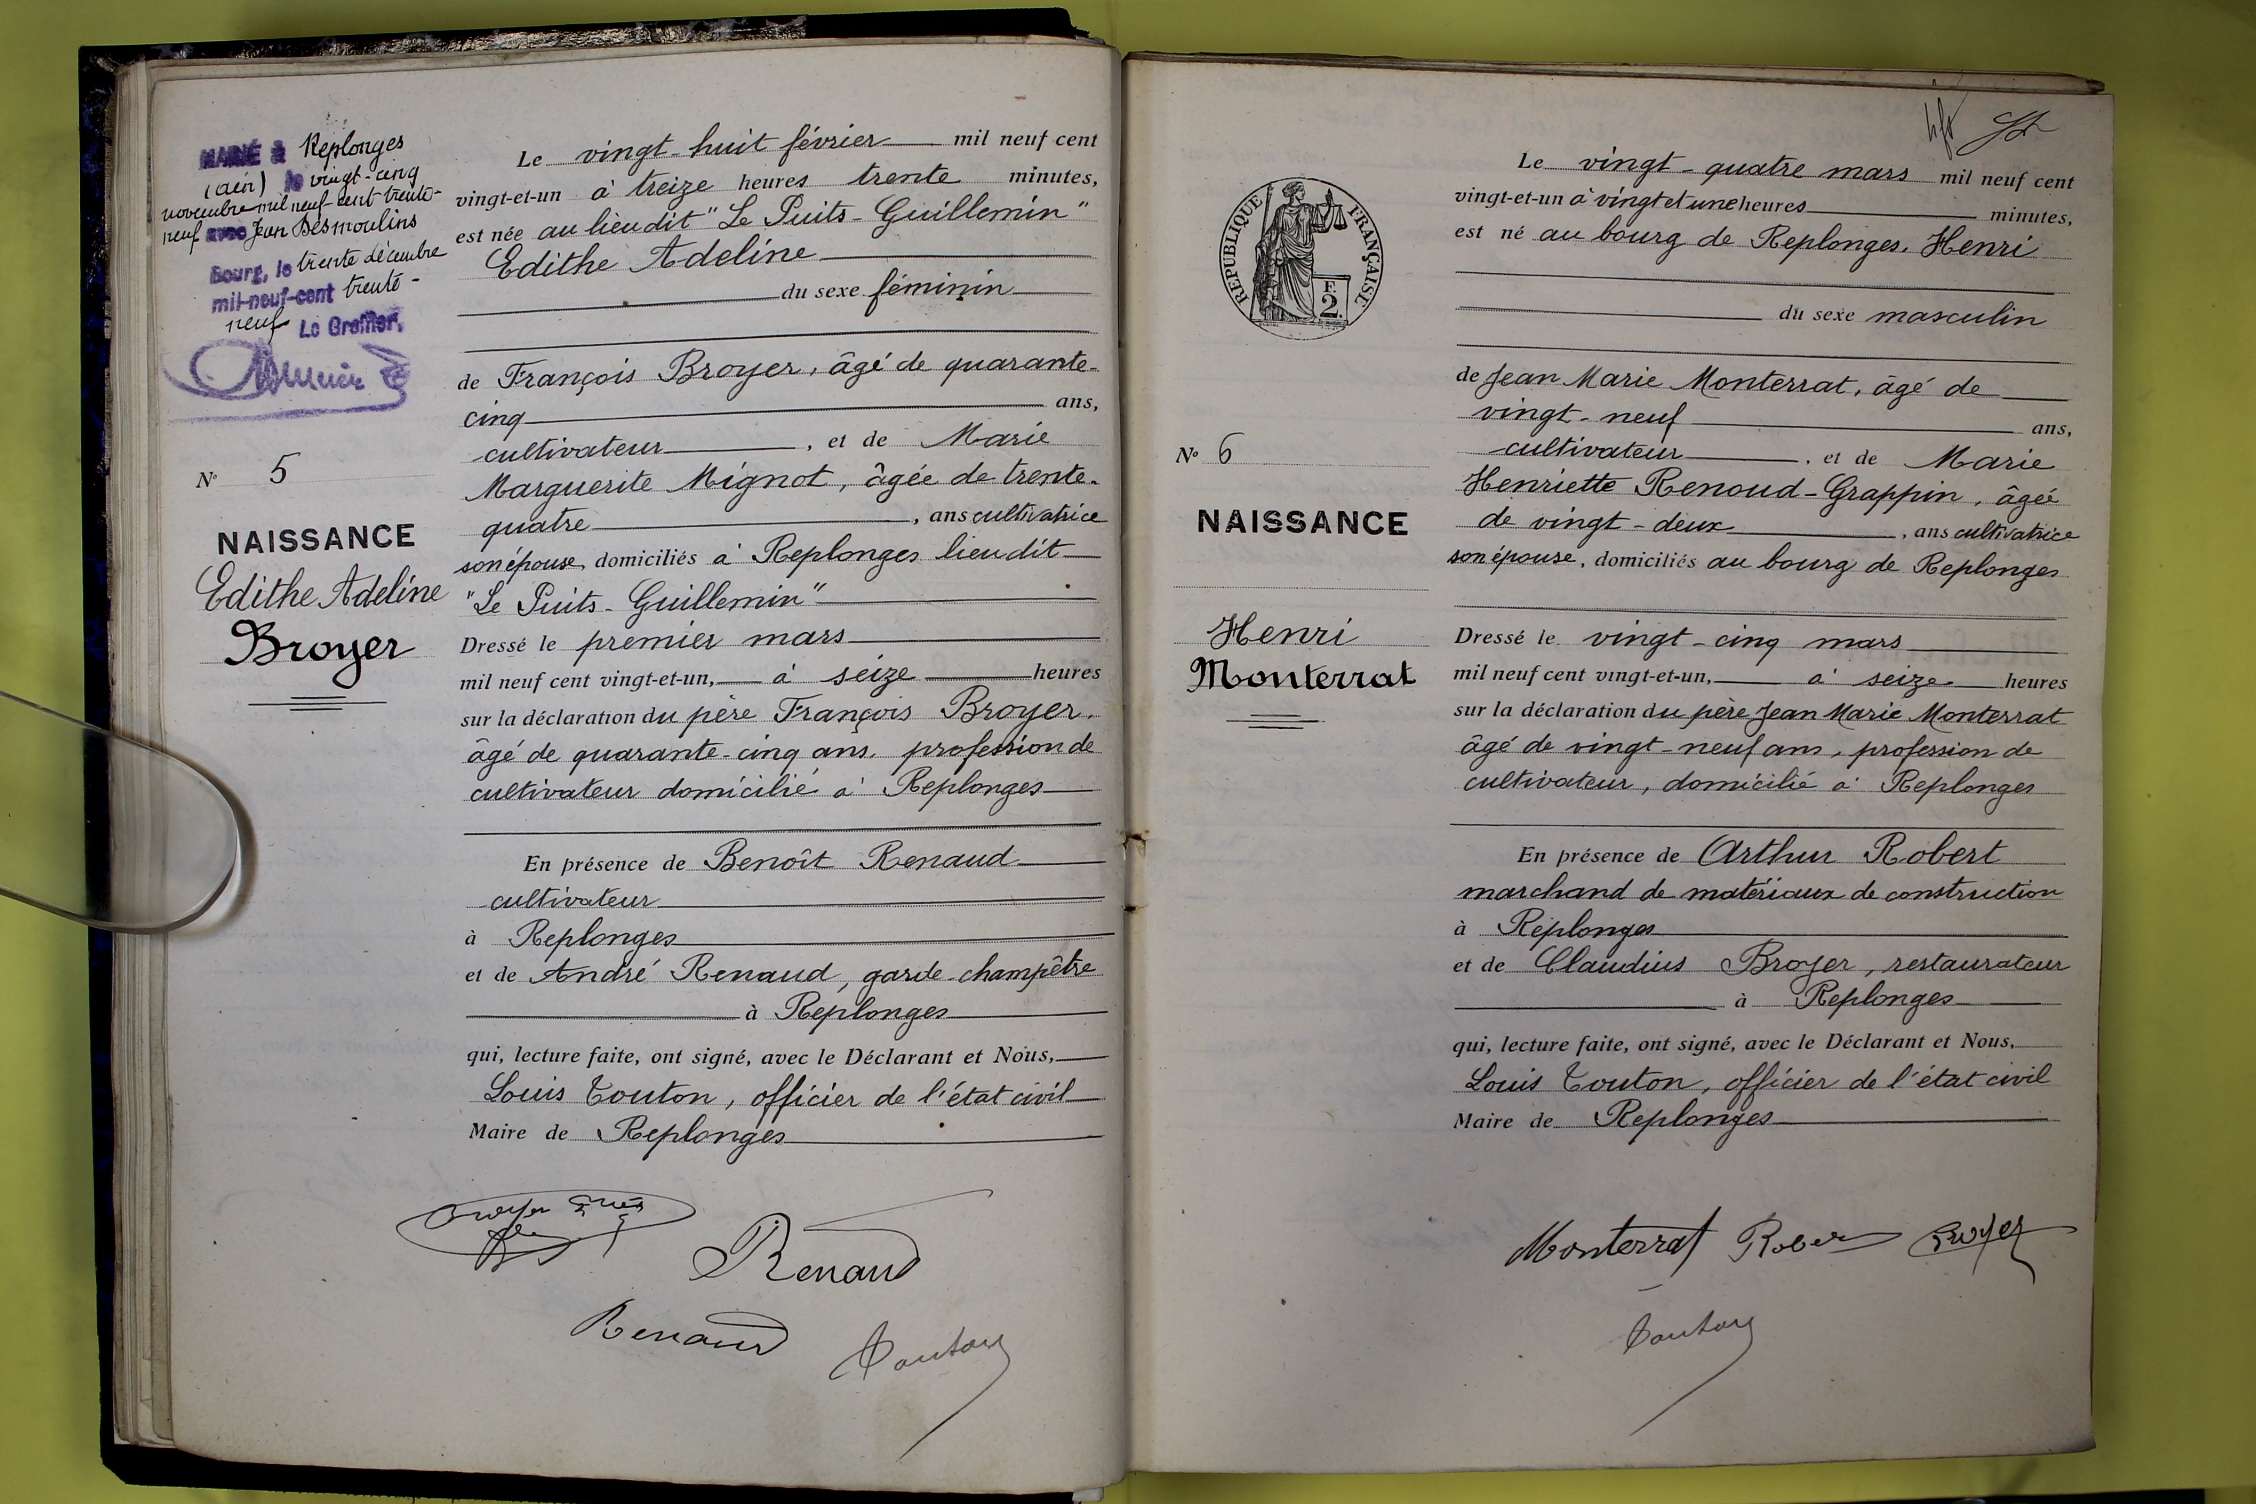 MARIÉ à Replonges
(ain) le vingt-cinq
novembre mil neuf-cent-trente-
neuf avec Jean Desmoulins
Bourg, le trente décembre
mil-neuf-cent trente-
neuf Le Greffier,
N° 5
NAISSANCE
Edithe Adeline
Broyer
Le vingt-huit février mil neuf cent
vingt-et-un à treize heures trente minutes,
est née au lieu dit "Le Puits-Guillemin"
Edithe Adeline
du sexe féminin
de François Broyer, âgé de quarante-
cinq ans,
cultivateur, et de Marie
Marguerite Mignot, âgée de trente-
quatre, ans cultivatrice
son épouse, domiciliés à Replonges lieu dit
"Le Puits-Guillemin"
Dressé le premier mars
mil neuf cent vingt-et-un, à seize heures
sur la déclaration du père François Broyer,
âgé de quarante-cinq ans, profession de
cultivateur domicilié à Replonges
En présence de Benoît Renaud
cultivateur
à Replonges
et de André Renaud, garde-champêtre
à Replonges
qui, lecture faite, ont signé, avec le Déclarant et Nous,
Louis Touton, officier de l'état civil
Maire de Replonges
Broyer
Renaud
Renaud
Touton
RÉPUBLIQUE FRANÇAISE
F.
2.
N° 6
NAISSANCE
Henri
Monterrat
Le vingt-quatre mars mil neuf cent
vingt-et-un à vingt et une heures minutes,
est né au bourg de Replonges, Henri
du sexe masculin
de Jean Marie Monterrat, âgé de
vingt-neuf ans,
cultivateur, et de Marie
Henriette Renoud-Grappin, âgée
de vingt-deux, ans cultivatrice
son épouse, domiciliés au bourg de Replonges
Dressé le vingt-cinq mars
mil neuf cent vingt-et-un, à seize heures
sur la déclaration du père Jean Marie Monterrat
âgé de vingt-neuf ans, profession de
cultivateur, domicilié à Replonges
En présence de Arthur Robert
marchand de matériaux de construction
à Replonges
et de Claudius Broyer, restaurateur
à Replonges
qui, lecture faite, ont signé, avec le Déclarant et Nous,
Louis Touton, officier de l'état civil
Maire de Replonges
Monterrat Robert Broyer
Touton